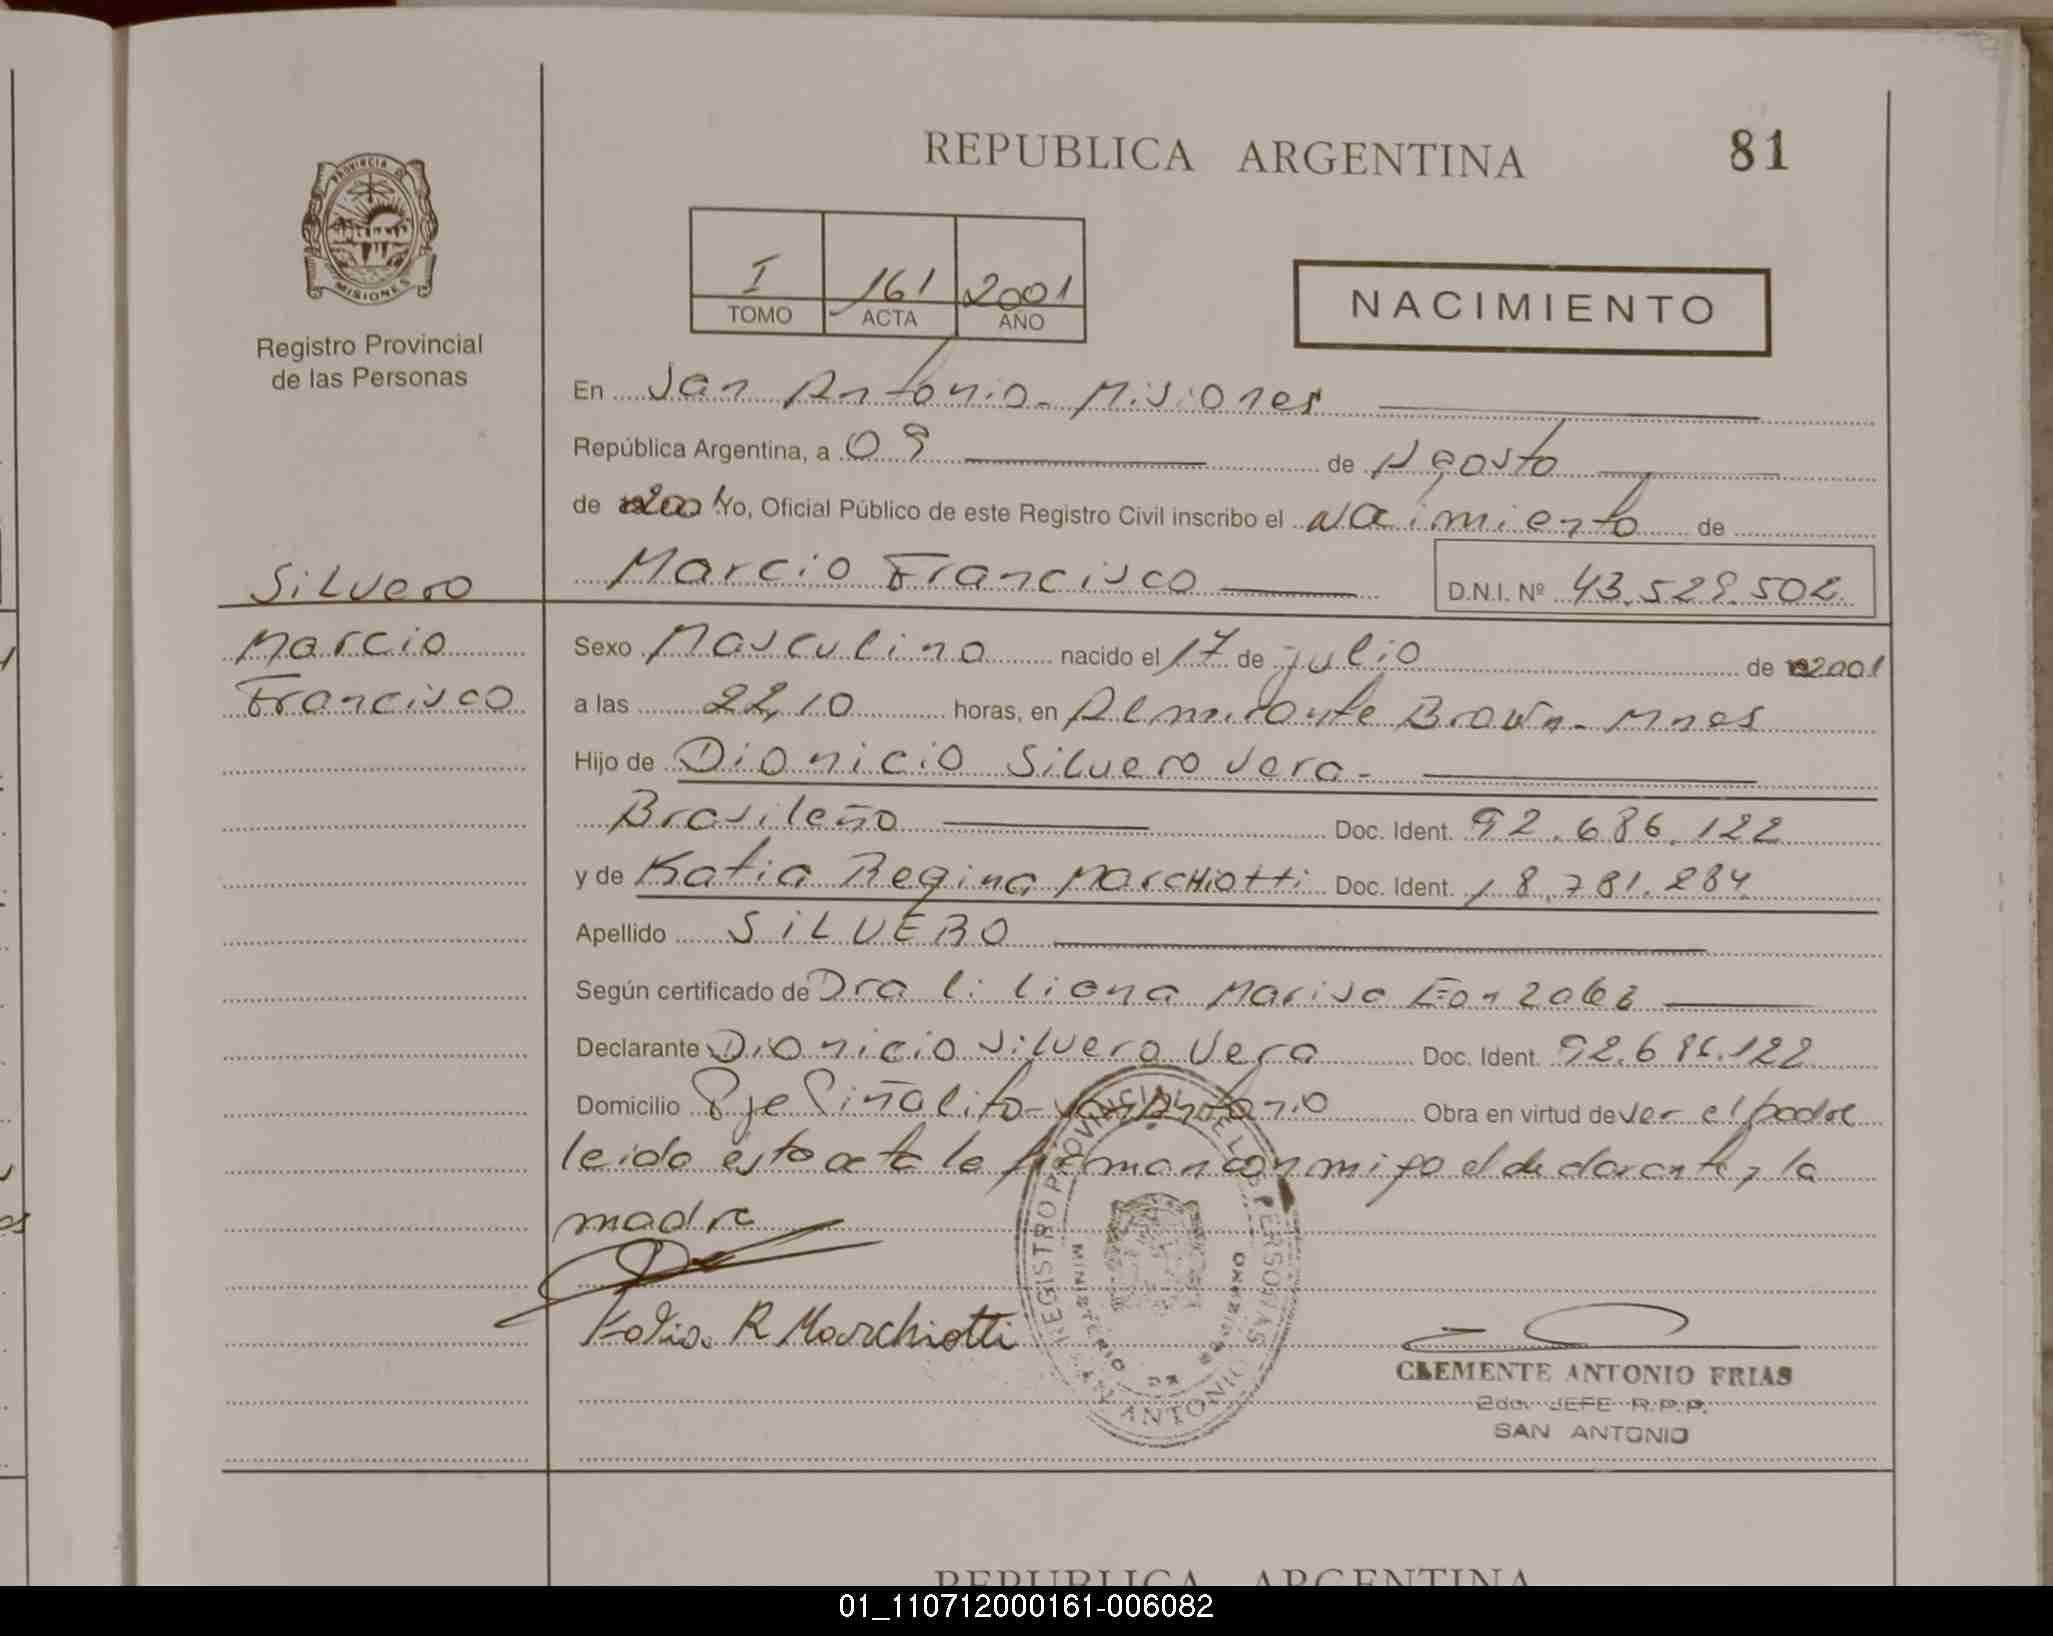 REPUBLICA ARGENTINA
81
PROVINCIA DE
MISIONES
Registro Provincial
de las Personas
I 161 2001
TOMO ACTA AÑO
NACIMIENTO
En San Antonio - Misiones
República Argentina, a 09 de Agosto
de 2001 Yo, Oficial Público de este Registro Civil inscribo el nacimiento de
Silvero
Marcio
Francisco
Marcio Francisco D.N.I. Nº 43.529.502
Sexo Masculino nacido el 17 de julio de 2001
a las 22,10 horas, en Almirante Brown - Mnes
Hijo de Dionicio Silvero Vera -
Brasileño Doc. Ident. 92.686.122
y de Katia Regina Marchiotti Doc. Ident. 18.781.284
Apellido SILVERO
Según certificado de Dra Liliana Marisa
Declarante Dionicio Silvero Vera Doc. Ident. 92.686.122
Domicilio Pje Piñalito - San Antonio Obra en virtud de ser el padre
leida esta acta la firman conmigo el declarante y la
madre
Katia. R Marchiotti
REGISTRO PROVINCIAL DE LAS PERSONAS
MINISTERIO DE GOBIERNO
SAN ANTONIO
CLEMENTE ANTONIO FRIAS
2do. JEFE R.P.P.
SAN ANTONIO
REPUBLICA ARGENTINA
01_110712000161-006082